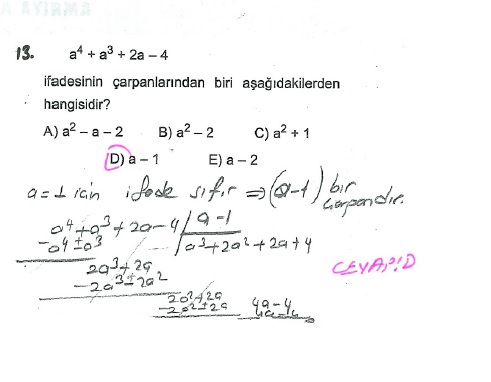 13. a⁴ + a³ + 2a – 4
ifadesinin çarpanlarından biri aşağıdakilerden
hangisidir?
A) a² – a – 2 B) a² – 2 C) a² + 1
D) a – 1 E) a – 2
a=1 için ifade sıfır ⇒ (a-1) bir
çarpandır.
a⁴+a³+2a-4 | a-1
-a⁴±a³ | a³+2a²+2a+4
2a³+2a
-2a³±2a²
CEVAP:D
2a²+2a
-2a²±2a
4a-4